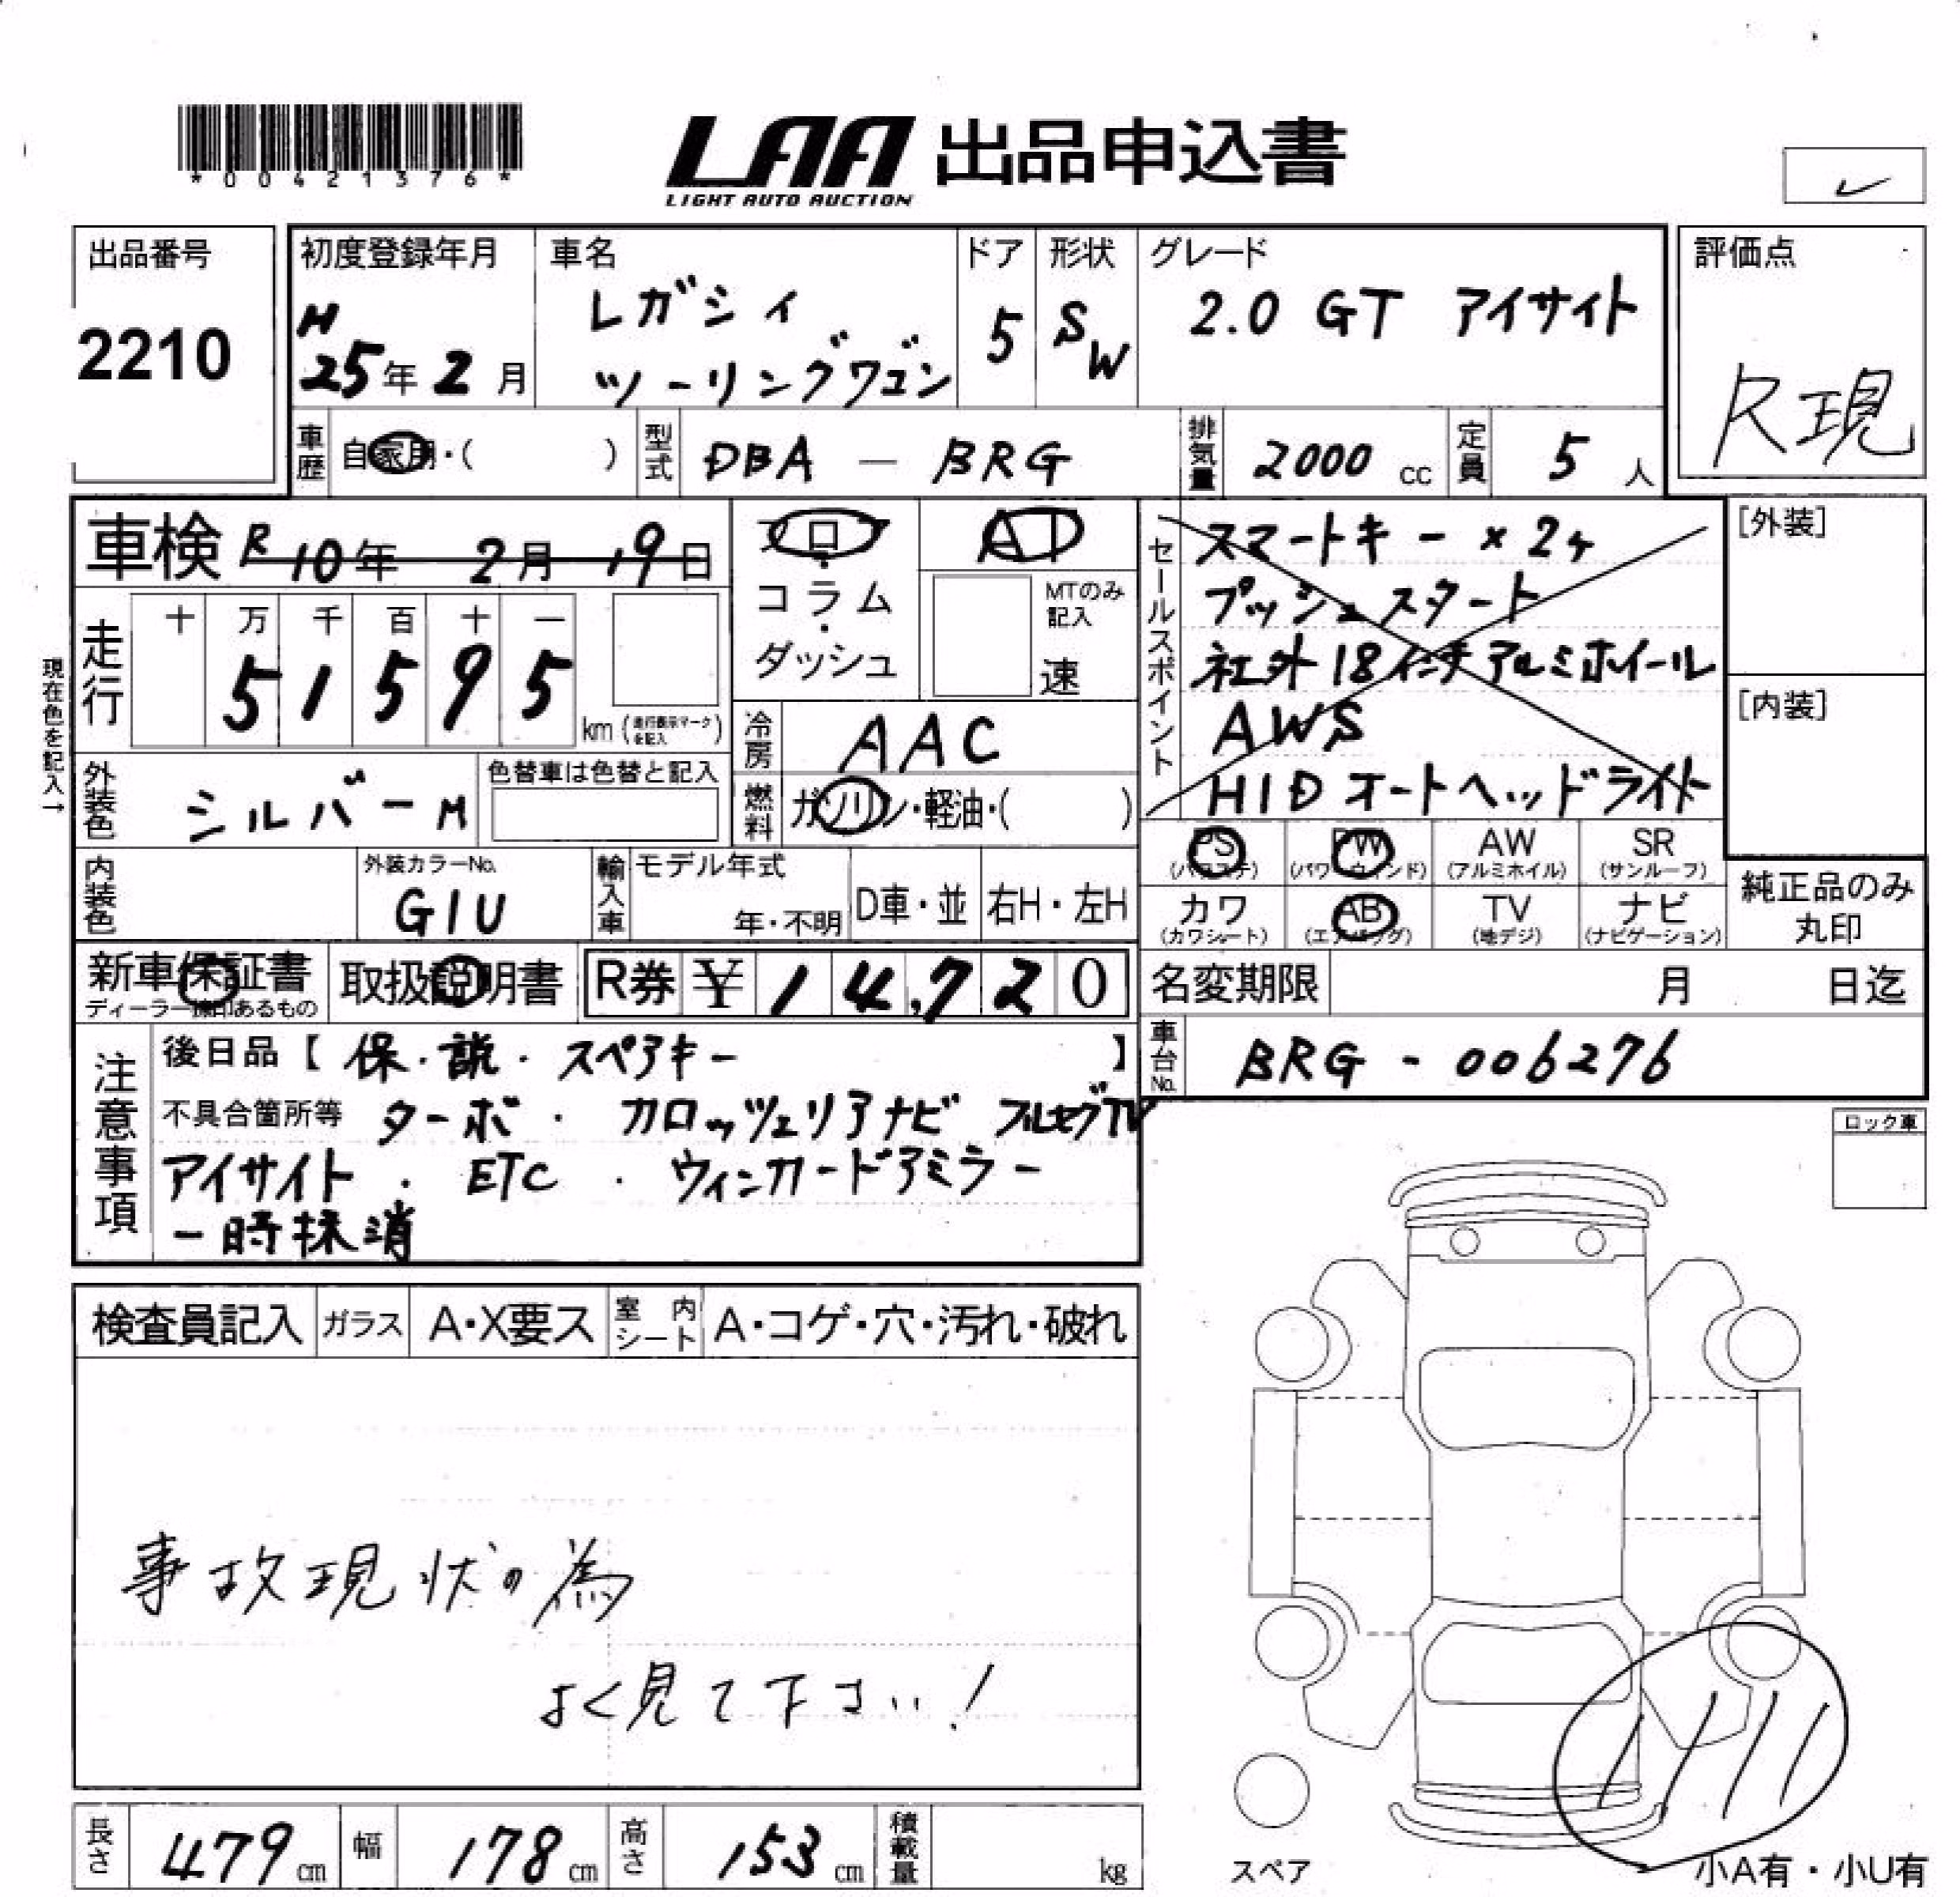 *00421376*
LAA 出品申込書
LIGHT AUTO AUCTION
出品番号
2210
初度登録年月
H
25年 2月
車名
レガシィ
ツーリングワゴン
ドア
5
形状
SW
グレード
2.0 GT アイサイト
評価点
R現
車歴 自家用・( )
型式 DBA — BRG
排気量 2000 cc
定員 5 人
車検 R 10年 2月 19日
フロア・コラム・ダッシュ
AT
MTのみ記入
速
走行
十 万 千 百 十 一
5 1 5 9 5
km (走行表示マークを記入)
現在色を記入→
外装色 シルバーM
色替車は色替と記入
冷房 AAC
燃料 ガソリン・軽油・( )
セールスポイント
スマートキー ×2ヶ
プッシュスタート
社外18インチアルミホイール
AWS
HID オートヘッドライト
[外装]
[内装]
PS (パワステ)
PW (パワーウィンド)
AW (アルミホイル)
SR (サンルーフ)
カワ (カワシート)
AB (エアバッグ)
TV (地デジ)
ナビ (ナビゲーション)
純正品のみ
丸印
内装色
外装カラーNo.
G1U
輸入車
モデル年式
年・不明
D車・並
右H・左H
新車保証書
ディーラー捺印あるもの
取扱説明書
R券 ¥ 14,720
名変期限 月 日迄
車台No. BRG - 006276
注意事項
後日品【 保・説・スペアキー 】
不具合箇所等 ターボ ・ カロッツェリアナビ フルセグTV
アイサイト ・ ETC ・ ウィンカードアミラー
一時抹消
ロック車
検査員記入
ガラス A・X要ス
室内シート A・コゲ・穴・汚れ・破れ
事故現状の為
よく見て下さい!
長さ 479 cm
幅 178 cm
高さ 153 cm
積載量 kg
スペア
小A有・小U有